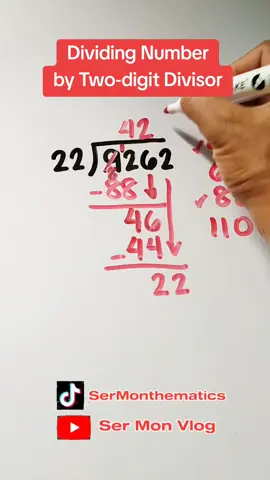 Dividing Number
by Two-digit Divisor
42
22)9262
-88
46
-44
22
110
SerMonthematics
Ser Mon Vlog